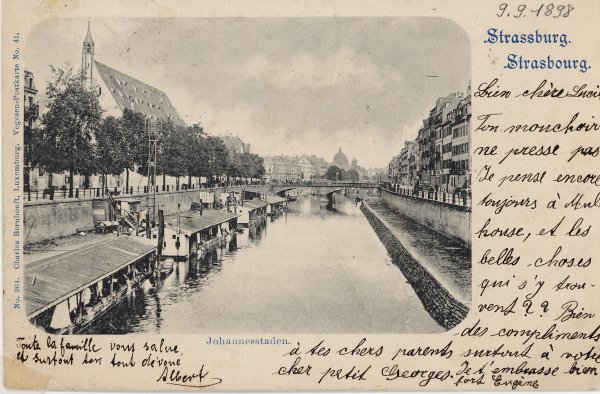 9.9.1898
Strassburg.
Strasbourg.
No. 964. Charles Bernhoeft, Luxemburg. Vogesen-Postkarte No. 41.
Bien chère Lucie
Ton mouchoir
ne presse pas
Je pense encore
toujours à Mul
house, et les
belles choses
qui s'y trou-
vent ? ? Bien
des compliments
à tes chers parents surtout à votre
cher petit Georges. Je t'embrasse bien
fort Eugène
Johannesstaden.
Toute la famille vous salue,
et surtout ton tout dévoué
Albert